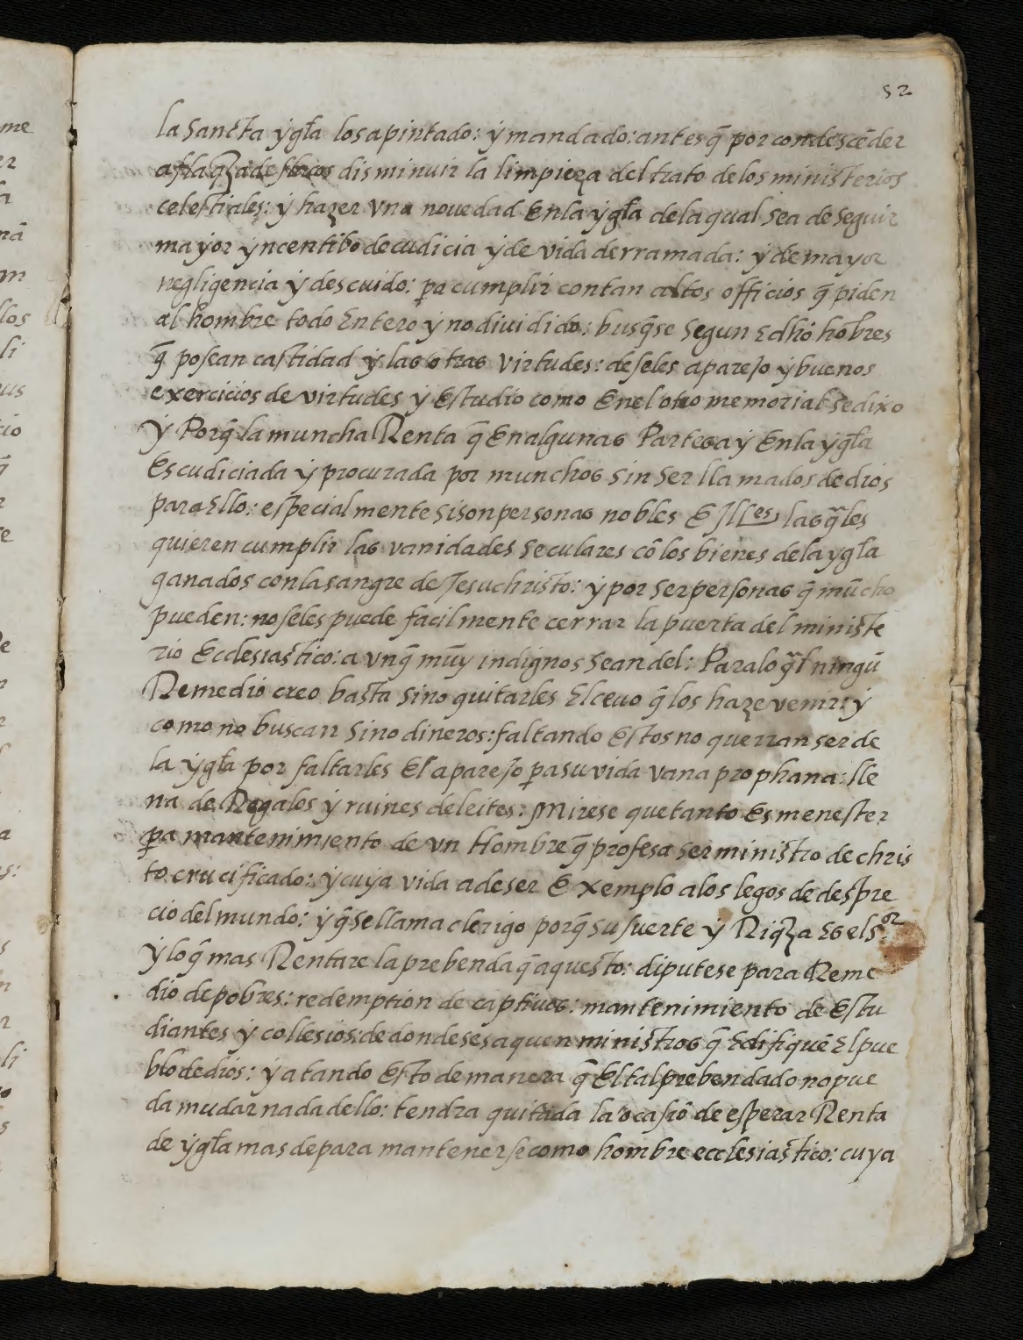 52
la Sancta ygła los a pintado: y mandado: antes q̃ por condescēder
a flaq̃za de otros disminuir la limpieza del trato de los ministerios
celestiales: y hazer vna nouedad En la ygła de la qual sea de seguir
mayor yncentibo de cudicia y de vida derramada: y de mayor
negligencia y descuido: pa cumplir con tan altos officios q̃ piden
al hombre todo Entero y no diuidido: busq̃se segun E dho hōbres
q̃ posean castidad y las otras virtudes: deseles aparejo y buenos
exercicios de virtudes y Estudio como En el otro memorial se dixo
y Porq̃ la muncha Renta q̃ En algunas Partes ay En la ygła
Es cudiciada y procurada por munchos sin ser llamados de dios
para Ello: especialmente si son personas nobles E Illes las q̃les
quieren cumplir las vanidades seculares cō los bienes de la ygła
ganados con la sangre de Jesuchristo: y por ser personas q̃ mūcho
pueden: no se les puede facilmente cerrar la puerta del ministe
rio Ecclesiastico: a vnq̃ muy indignos sean del: Para lo q̃l ningū
Remedio creo basta sino quitarles El ceuo q̃ los haze venir: y
como no buscan sino dineros: faltando Estos no querran ser de
la ygła por faltarles El aparejo pa su vida vana prophana: lle
na de Regalos y ruines deleites: Mirese que tanto Es menester
pa mantenimiento de vn Hombre q̃ profesa ser ministro de chris
to crucificado: y cuya vida a de ser Exemplo a los legos de despre
cio del mundo: y q̃ se llama clerigo porq̃ su suerte y Riq̃za Es el sor
y lo q̃ mas Rentare la prebenda q̃ aquesto: diputese para Reme
dio de pobres: redemption de captiuos: mantenimiento de Estu
diantes y collesios: de donde se saquen ministros q̃ Edifiquē El pue
blo de dios: y atando Esto de manera q̃ El tal prebendado no pue
da mudar nada dello: tendra quitada la ocasiō de esperar Renta
de ygła mas de para mantenerse como hombre ecclesiastico: cuya